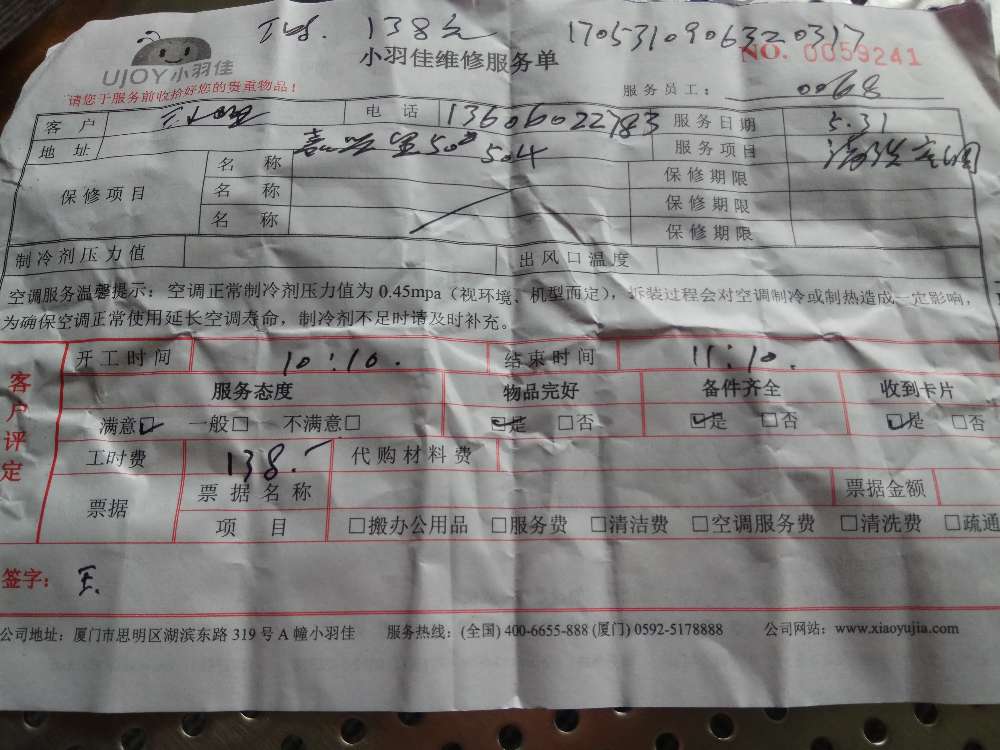 138元 1705310906320317
UJOY小羽佳 小羽佳维修服务单 NO. 0059241
请您于服务前收拾好您的贵重物品！ 服务员工： 0068
客户 电话 13606022783 服务日期 5.31
地址 504 服务项目 清洗空调
保修项目 名称 保修期限
名称 保修期限
名称 保修期限
制冷剂压力值 出风口温度
空调服务温馨提示：空调正常制冷剂压力值为 0.45mpa（视环境、机型而定），拆装过程会对空调制冷或制热造成一定影响，
为确保空调正常使用延长空调寿命，制冷剂不足时请及时补充。
客户评定
开工时间 10:10. 结束时间 11:10.
服务态度 物品完好 备件齐全 收到卡片
满意☑ 一般□ 不满意□ ☑是 □否 ☑是 □否 ☑是 □否
工时费 138. 代购材料费
票据 票据名称 票据金额
项目 □搬办公用品 □服务费 □清洁费 □空调服务费 □清洗费 □疏通
签字： 王.
公司地址：厦门市思明区湖滨东路 319 号 A 幢小羽佳 服务热线：(全国) 400-6655-888 (厦门) 0592-5178888 公司网站：www.xiaoyujia.com